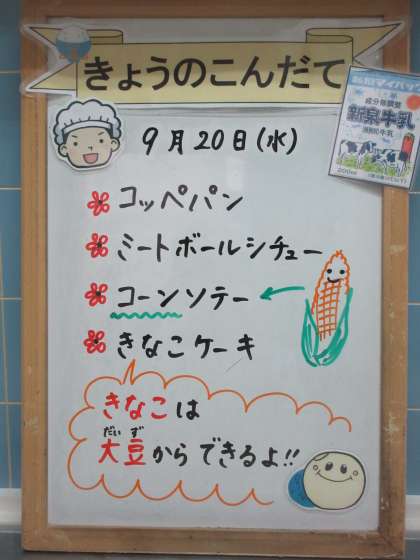 きょうのこんだて
9月20日(水)
コッペパン
ミートボールシチュー
コーンソテー
きなこケーキ
きなこは
大豆からできるよ!!
だいず
新泉牛乳
200ml